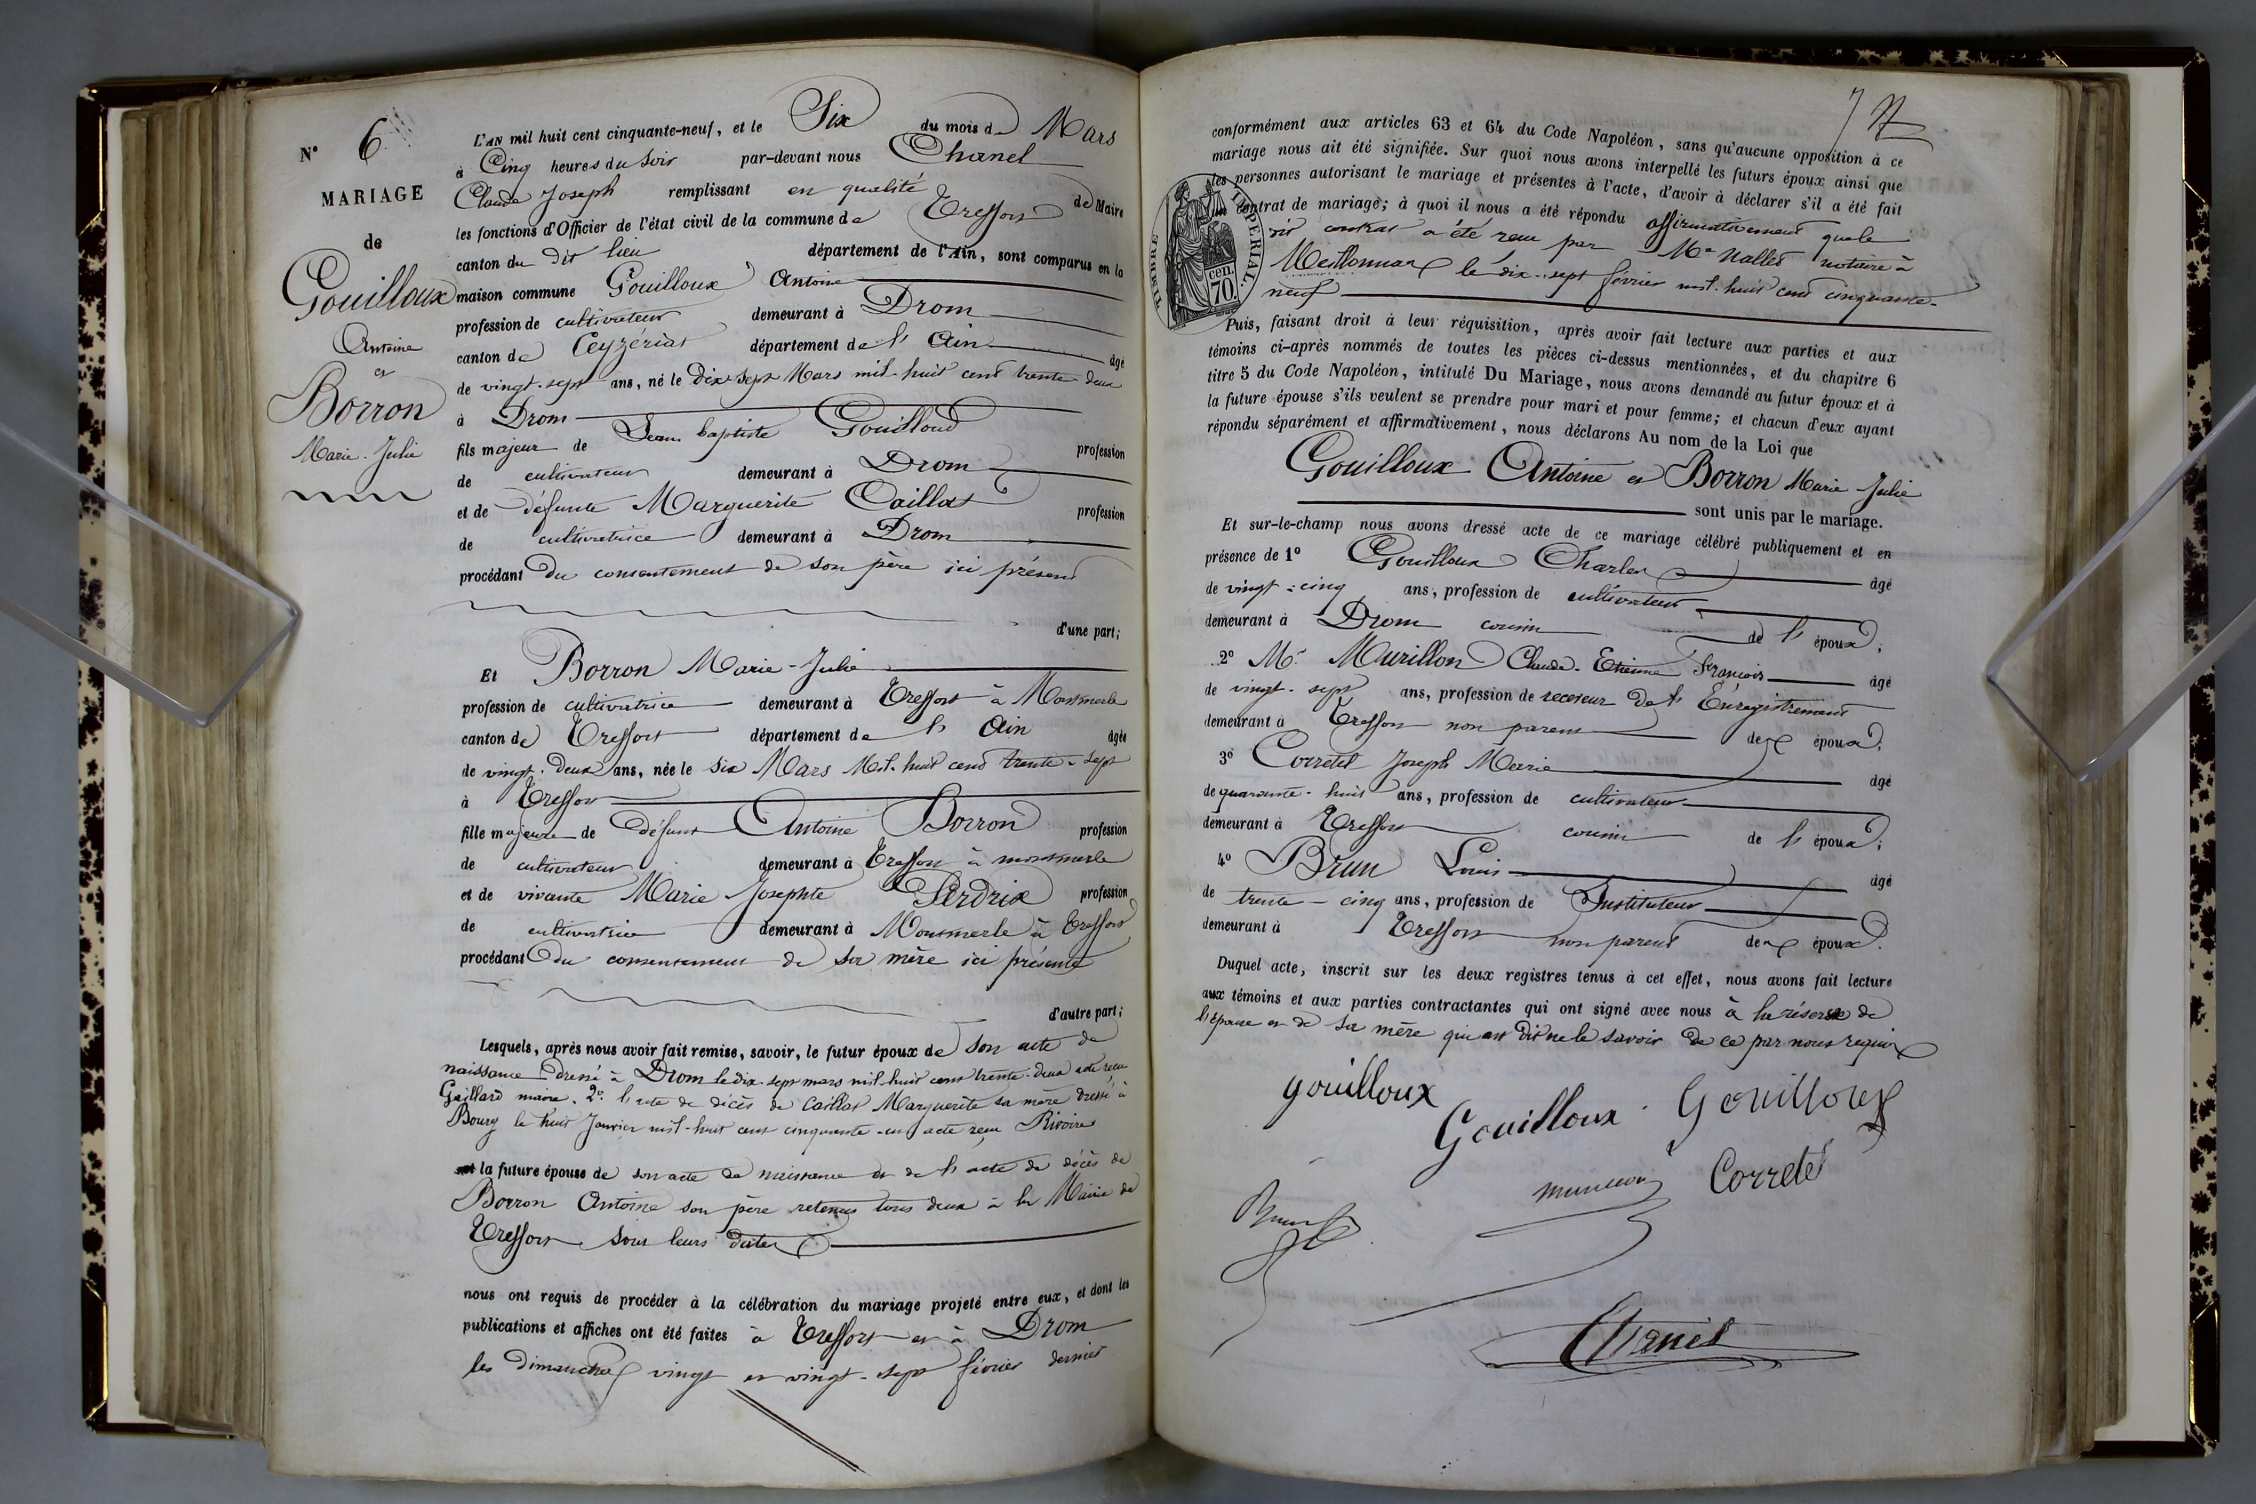 N° 6
MARIAGE
de
Gouilloux
Antoine
et
Borron
Marie-Julie
L'AN mil huit cent cinquante-neuf, et le Six du mois de Mars
à Cinq heures du Soir par-devant nous Chanel
Claude Joseph remplissant en qualité de Maire
les fonctions d'Officier de l'état civil de la commune de Treffort
canton du dit lieu département de l'Ain, sont comparus en la
maison commune Gouilloux Antoine
profession de cultivateur demeurant à Drom
canton de Ceyzériat département de l'Ain âgé
de vingt-sept ans, né le Dix Sept Mars mil-huit cent trente deux
à Drom
fils majeur de Jean baptiste Gouilloud profession
de cultivateur demeurant à Drom
et de défunte Marguerite Caillat profession
de cultivatrice demeurant à Drom
procédant du consentement de son père ici présent
d'une part;
Et Borron Marie-Julie
profession de cultivatrice demeurant à Treffort à Montmerle
canton de Treffort département de l'Ain âgée
de vingt-deux ans, née le Six Mars Mil-huit cent trente-sept
à Treffort
fille majeure de défunt Antoine Borron profession
de cultivateur demeurant à Treffort à montmerle
et de vivante Marie Josephte Perdrix profession
de cultivatrice demeurant à Montmerle à Treffort
procédant du consentement de sa mère ici présente
d'autre part;
Lesquels, après nous avoir fait remise, savoir, le futur époux de son acte de
naissance dressé à Drom le dix-sept mars mil-huit cent trente-deux acte reçu
Gaillard maire. 2° l'acte de décès de Caillat Marguerite sa mère dressé à
Bourg le huit Janvier mil-huit cent cinquante-un acte reçu Rivoire
et la future épouse de son acte de naissance et de l'acte de décès de
Borron Antoine son père retenus tous deux à la Mairie de
Treffort sous leurs dates
nous ont requis de procéder à la célébration du mariage projeté entre eux, et dont les
publications et affiches ont été faites à Treffort et à Drom
les dimanches vingt et vingt-sept février dernier
conformément aux articles 63 et 64 du Code Napoléon, sans qu'aucune opposition à ce
mariage nous ait été signifiée. Sur quoi nous avons interpellé les futurs époux ainsi que
les personnes autorisant le mariage et présentes à l'acte, d'avoir à déclarer s'il a été fait
un contrat de mariage; à quoi il nous a été répondu affirmativement que le
dit contrat a été reçu par Me Nallet notaire à
Meillonnas le dix-sept février mil-huit cent cinquante-
neuf
TIMBRE IMPÉRIAL
70. cen.
Puis, faisant droit à leur réquisition, après avoir fait lecture aux parties et aux
témoins ci-après nommés de toutes les pièces ci-dessus mentionnées, et du chapitre 6
titre 5 du Code Napoléon, intitulé Du Mariage, nous avons demandé au futur époux et à
la future épouse s'ils veulent se prendre pour mari et pour femme; et chacun d'eux ayant
répondu séparément et affirmativement, nous déclarons Au nom de la Loi que
Gouilloux Antoine et Borron Marie Julie
sont unis par le mariage.
Et sur-le-champ nous avons dressé acte de ce mariage célébré publiquement et en
présence de 1° Gouilloux Charles âgé
de vingt-cinq ans, profession de cultivateur
demeurant à Drom cousin de l'époux;
2° Mr Murillon Claude-Etienne François âgé
de vingt-sept ans, profession de receveur de l'Enregistrement
demeurant à Treffort non parent des époux;
3° Corretel Joseph Marie âgé
de quarante-huit ans, profession de cultivateur
demeurant à Treffort cousin de l'époux;
4° Brun Louis âgé
de trente-cinq ans, profession de Instituteur
demeurant à Treffort non parent des époux.
Duquel acte, inscrit sur les deux registres tenus à cet effet, nous avons fait lecture
aux témoins et aux parties contractantes qui ont signé avec nous à la réserve de
l'épouse et de sa mère qui ont dit ne le savoir de ce par nous requis
gouilloux
Gouilloux
Gouilloux
Corretel
Brun
Chanel